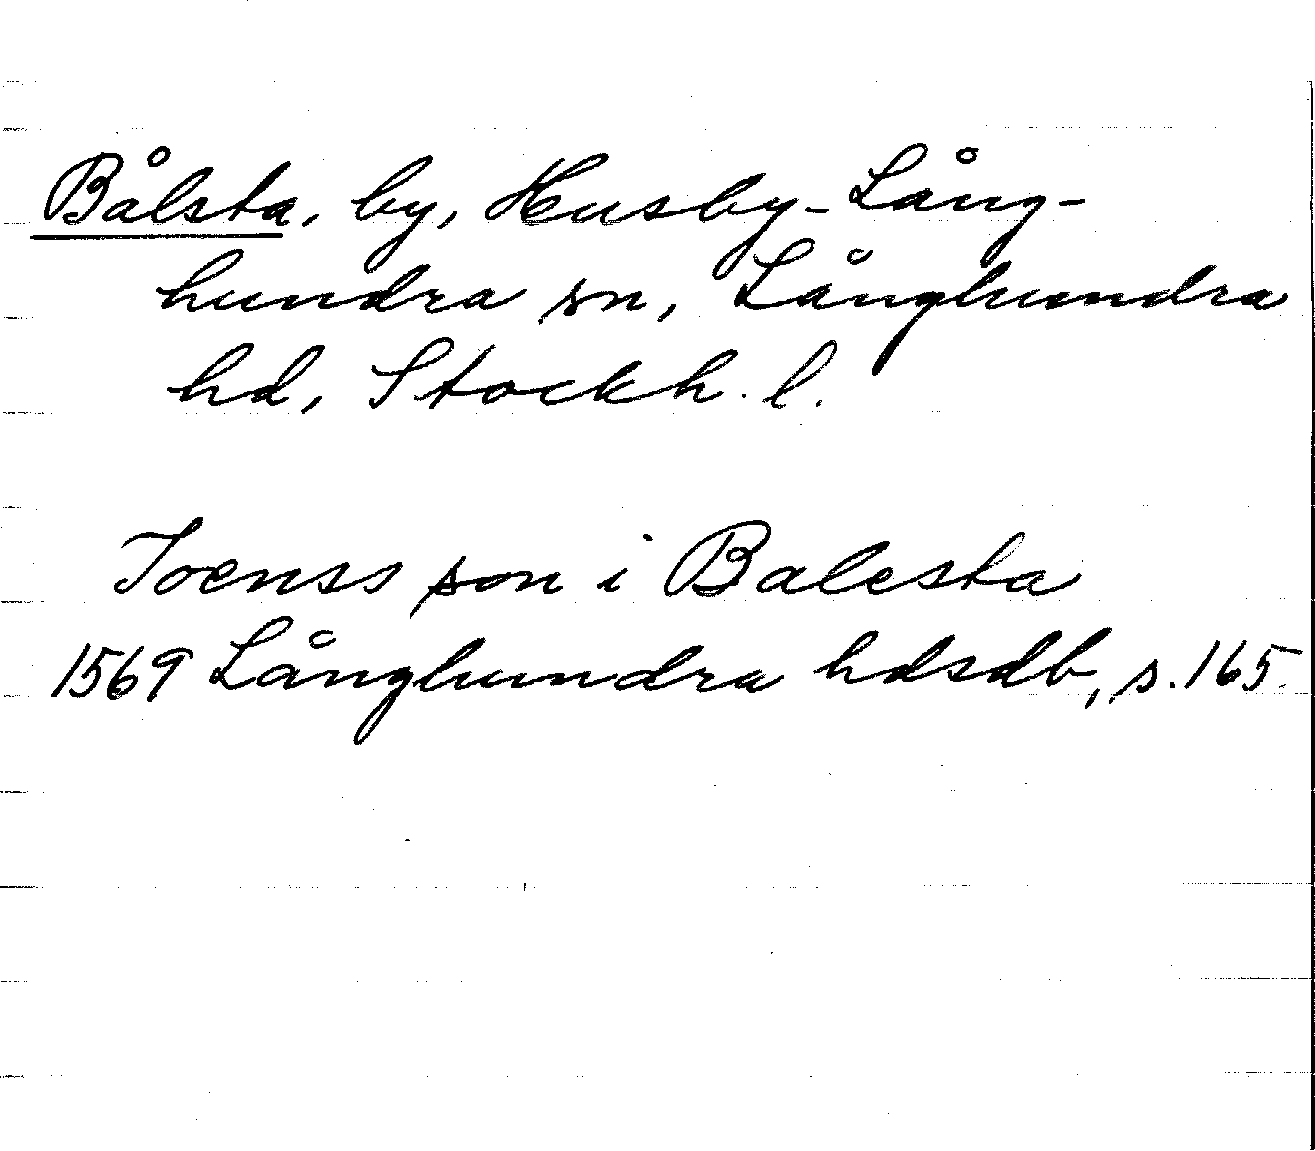 Bålsta, by, Husby-Lång-
hundra sn, Långhundra
hd, Stockh. l.
Joenss son i Balesta
1569 Långhundra hdsdb, s. 165.